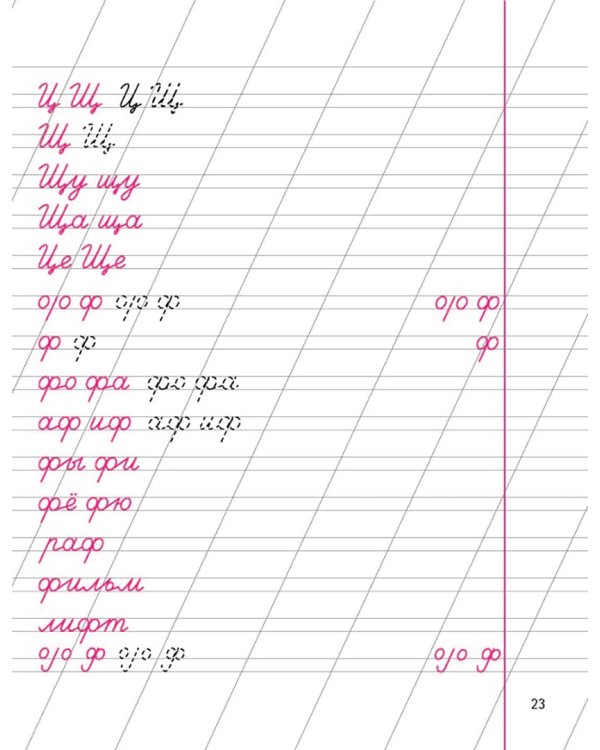 Ц Щ Ц Щ
Щ Щ
Щу щу
Ща ща
Це Ще
о/о ф о/о ф о/о ф
ф ф ф
фо фа фо фа
аф иф аф иф
фы фи
фё фю
раф
фильм
лифт
о/о ф о/о ф о/о ф
23